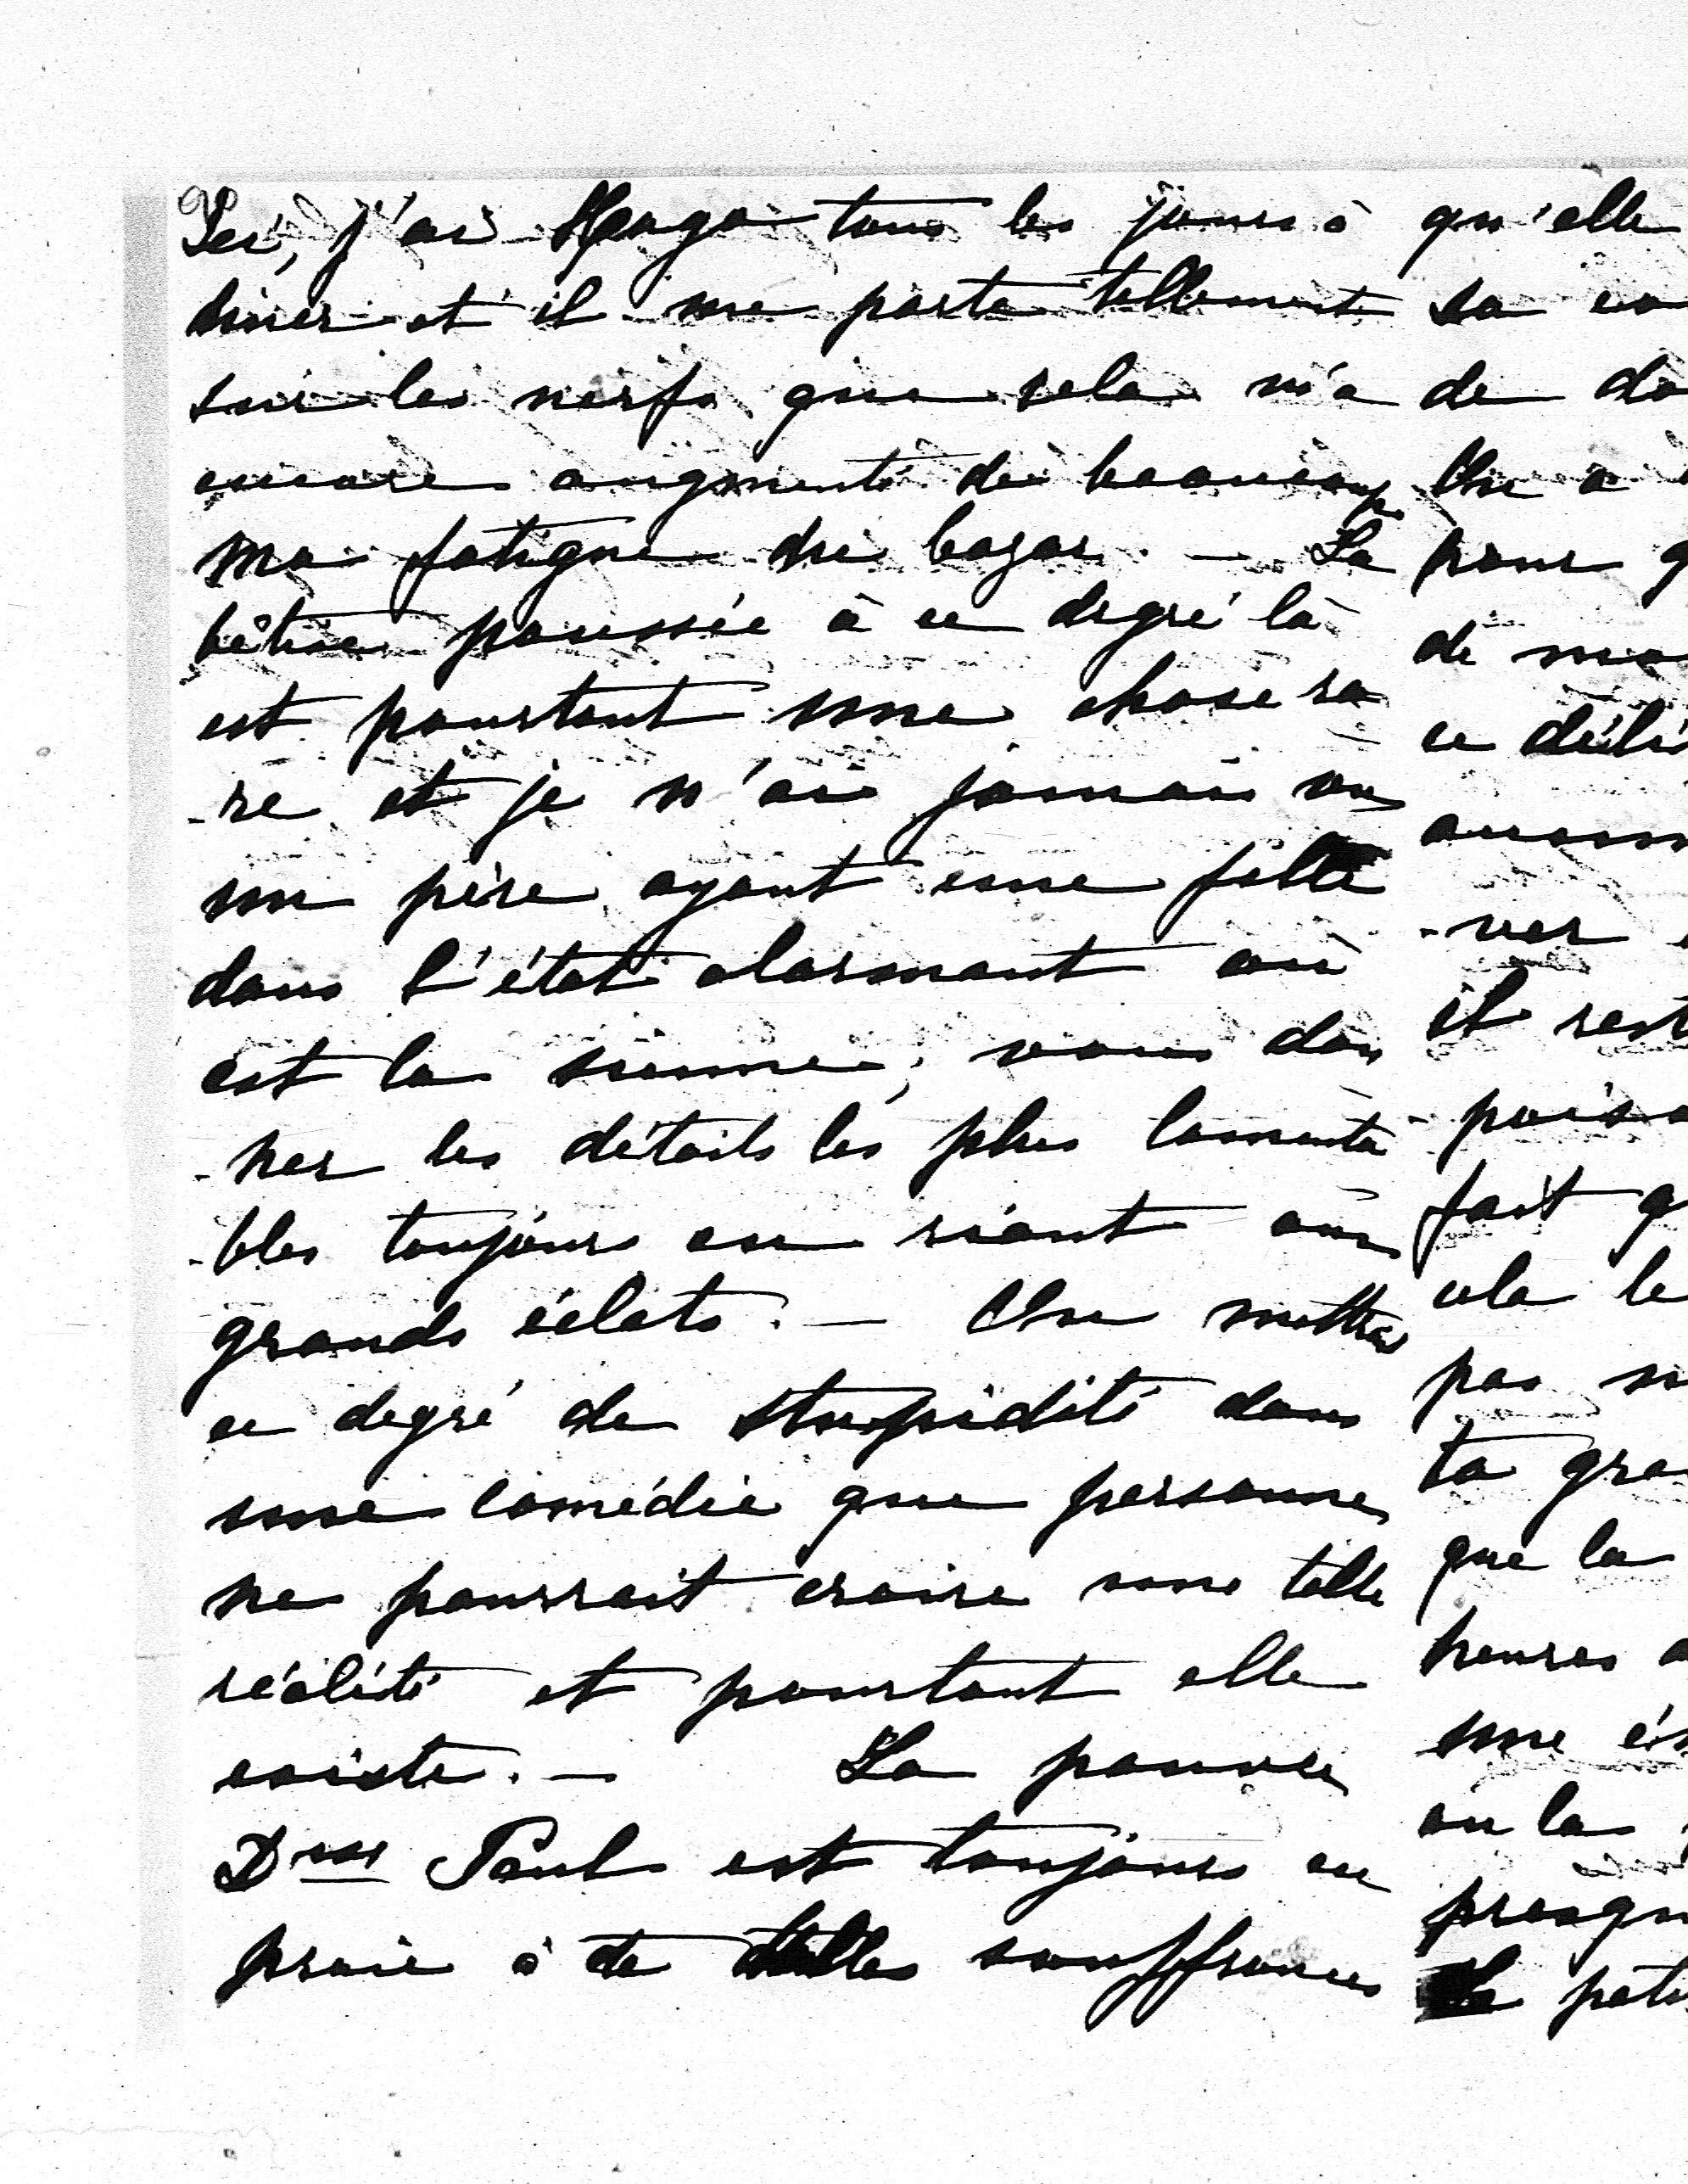 Ici, j'ai Hugo tous les jours à
diner et il me porte tellement
sur les nerfs que cela m'a
encore augmenté de beaucoup
ma fatigue du bazar. — La
bêtise poussée à ce degré là
est pourtant une chose ra
-re et je n'ai jamais vu
un père ayant une fille
dans l'état alarmant où
est la sienne, vous don
-ner les détails les plus lamenta
-bles toujours en riant aux
grands éclats. — On mettrait
ce degré de stupidité dans
une comédie que personne
ne pourrait croire une telle
réalité et pourtant elle
existe. — La pauvre
Dme Paul est toujours en
proie à de telles souffrances
qu'elle
sa
de do
On a
pour q
de mo
ce déli
-ver
il rest
fait q
cela le
pas
ta gra
que la
heures a
une
ou la
presqu
La peti